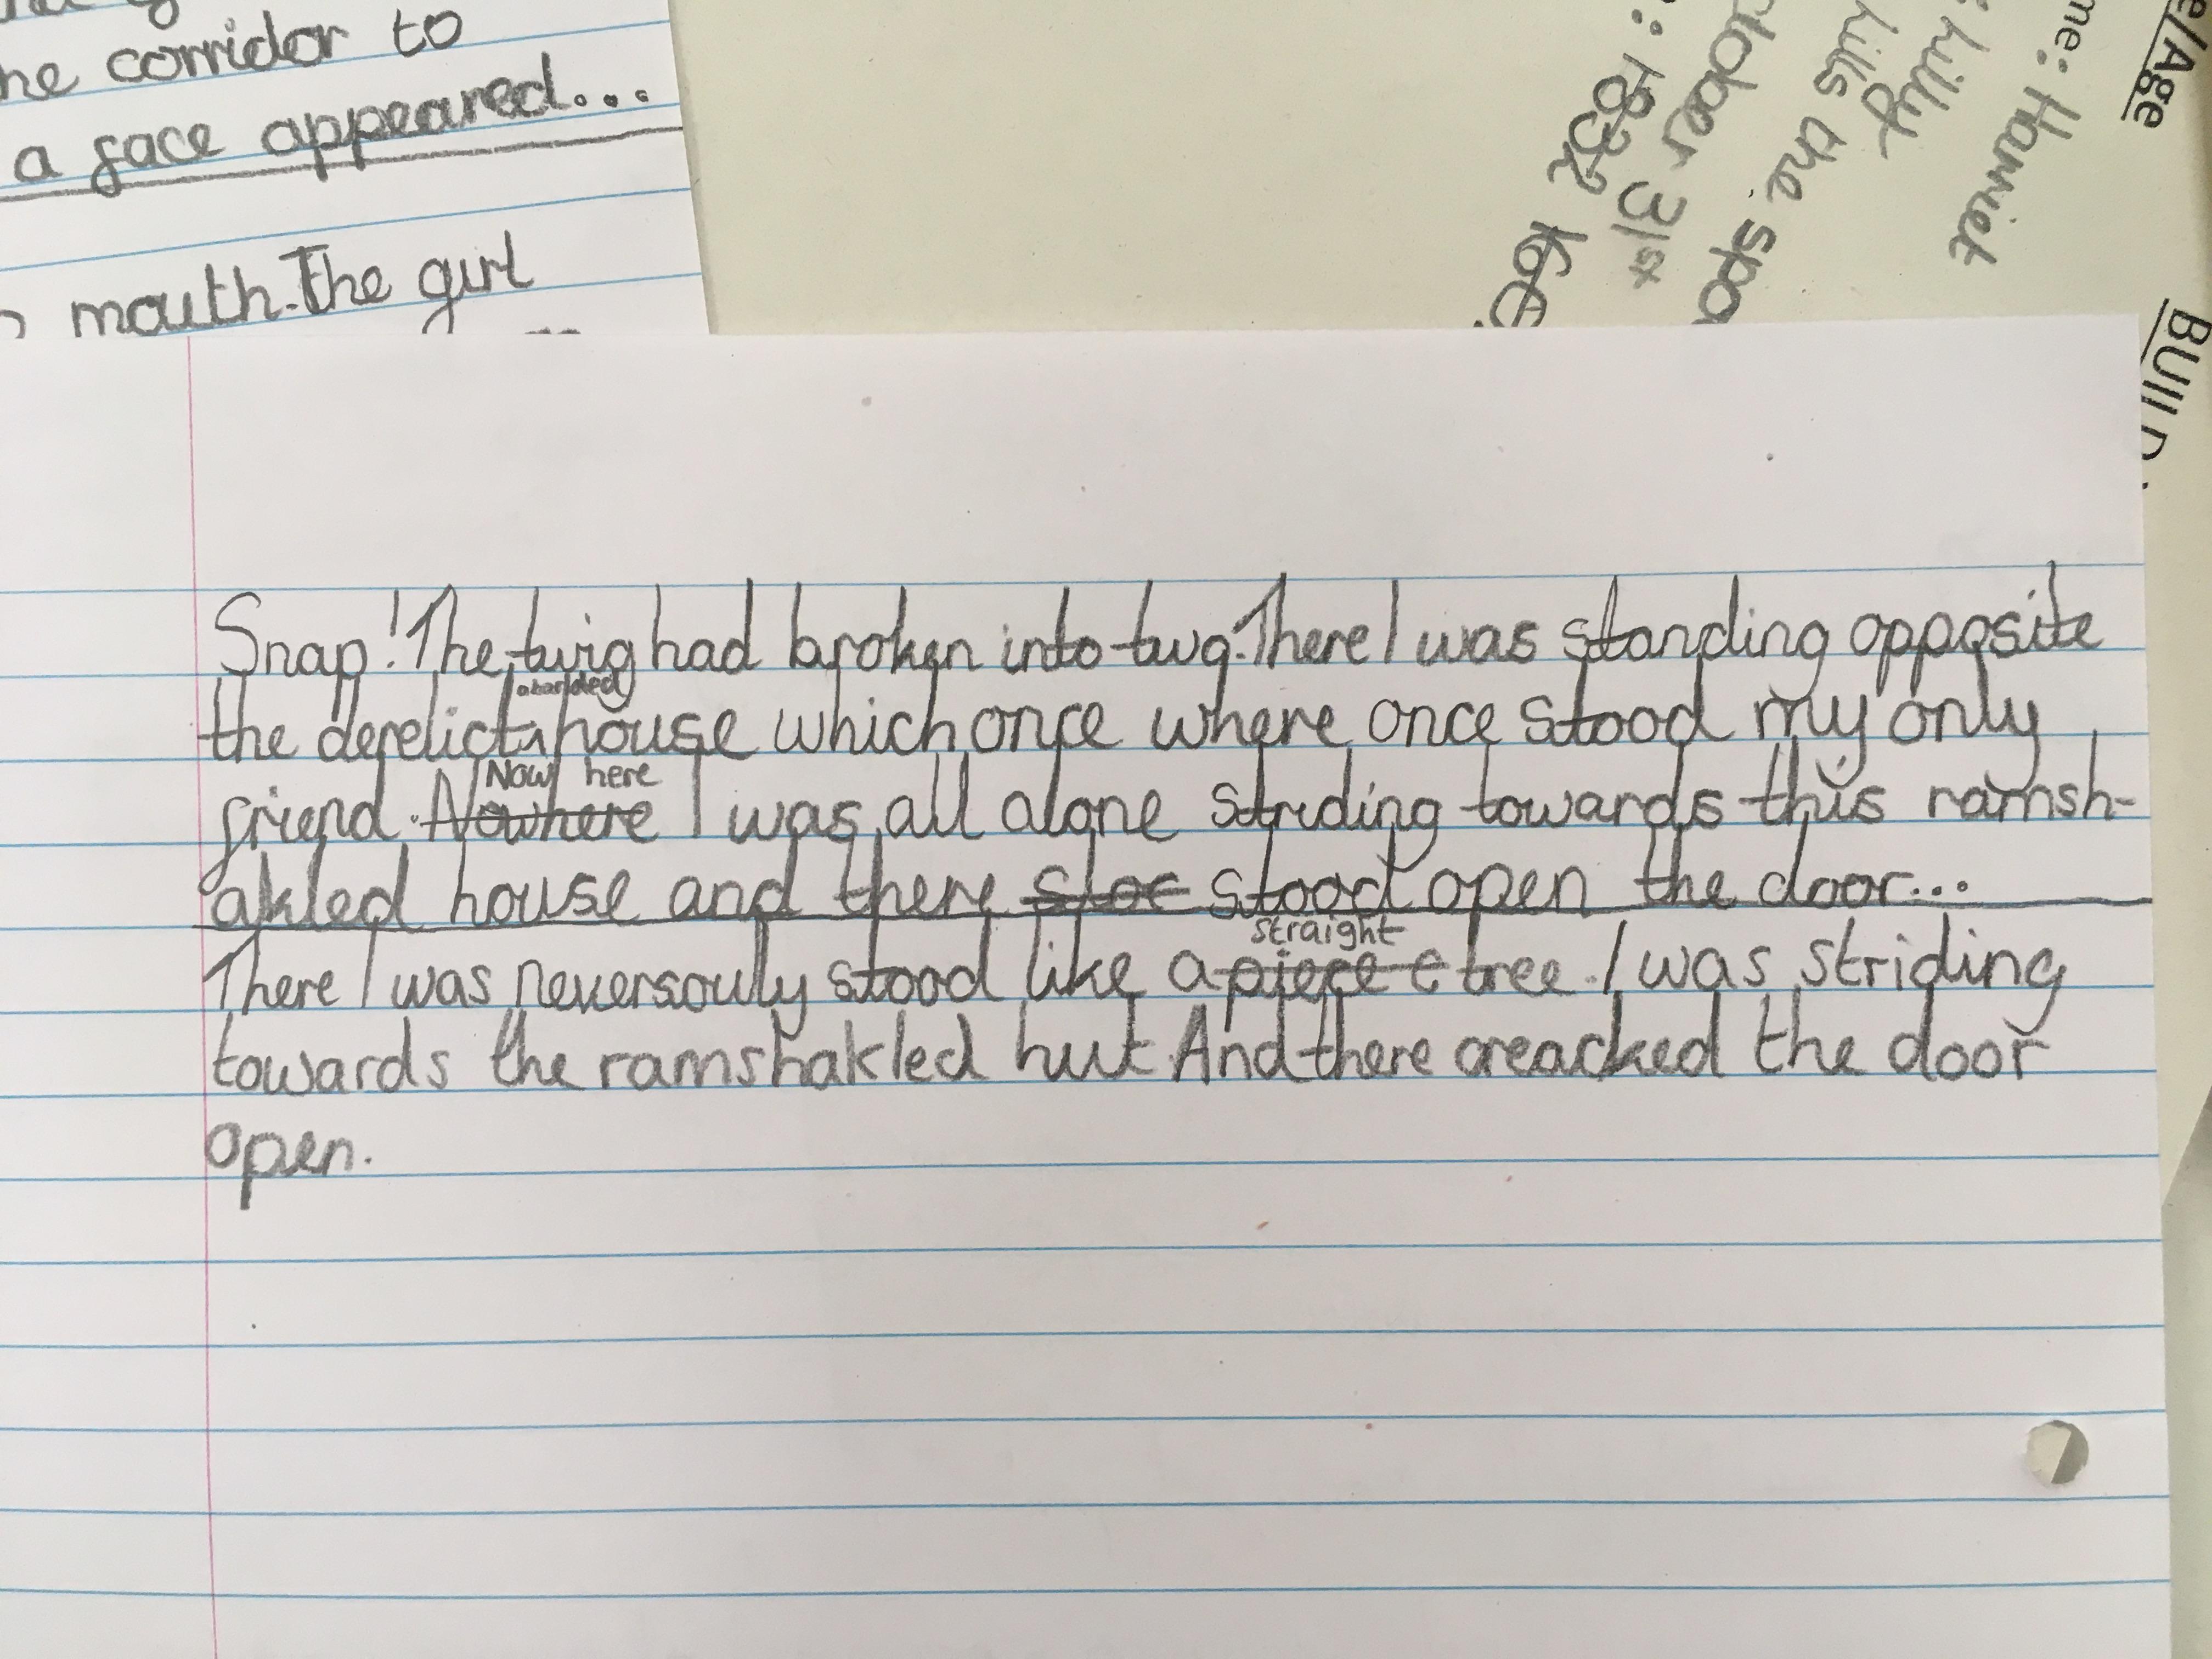 he corridor to
a face appeared...
mouth. The girl
me: Harriet
e/Age
: hilly
hills the spo
ctober 31st
: 1832
BUILD
Snap! The twig had broken into two. There I was standing opposite
abanded
the derelict house which once where once stood my only
Now here
friend. Nowhere I was all alone striding towards this ramsh-
akled house and there stoe stood open the door...
straight
There I was neversouly stood like a piece c tree. I was striding
towards the ramshakled hut. And there creacked the door
open.